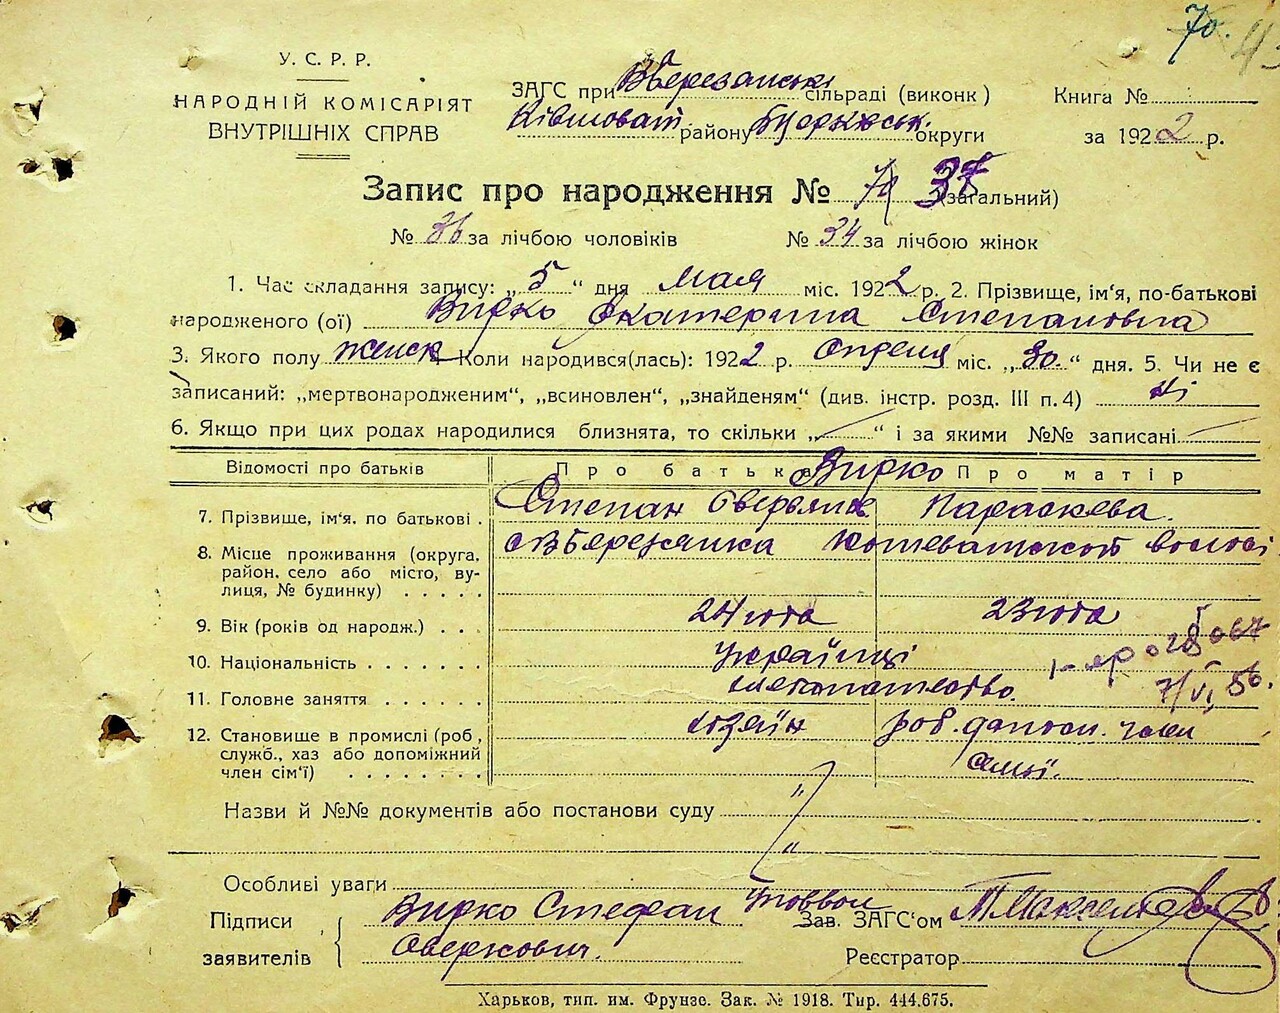 70.
У. С. Р. Р.
НАРОДНІЙ КОМІСАРІЯТ
ВНУТРІШНІХ СПРАВ
ЗАГС при сільраді (виконк)
району округи
Книга №
за 1922 р.
Запис про народження № 70 37 (загальний)
№ 36 за лічбою чоловіків № 34 за лічбою жінок
1. Час складання запису: „5“ дня Мая міс. 1922 р. 2. Прізвище, ім'я, по-батькові
народженого (ої) Вирко Екатерина Степановна
3. Якого полу женск Коли народився(лась): 1922 р. Опреля міс. „30.“ дня. 5. Чи не є
записаний: „мертвонародженим“, „всиновлен“, „знайденям“ (див. інстр. розд. III п. 4) ні
6. Якщо при цих родах народилися близнята, то скільки „ “ і за якими №№ записані
Відомості про батьків Про батька Вирко Про матір
7. Прізвище, ім'я. по батькові . Степан Параскева.
8. Місце проживання (округа, район. село або місто, вулиця, № будинку) . . . . . Березянка
9. Вік (років од народж.) . . . 24 года 23 года
10. Національність . . . . . . . Українці
11. Головне заняття . . . . . .
7/VI, 56.
12. Становище в промислі (роб, служб., хаз або допоміжний член сім'ї) . . . . . . . . хозяїн роб. допом. член
семї.
Назви й №№ документів або постанови суду "
"
Особливі уваги
Підписи Вирко Стефан Зав. ЗАГС'ом
заявителів Оверкович. Реєстратор
Харьков, тип. им. Фрунзе. Зак. № 1918. Тир. 444.675.